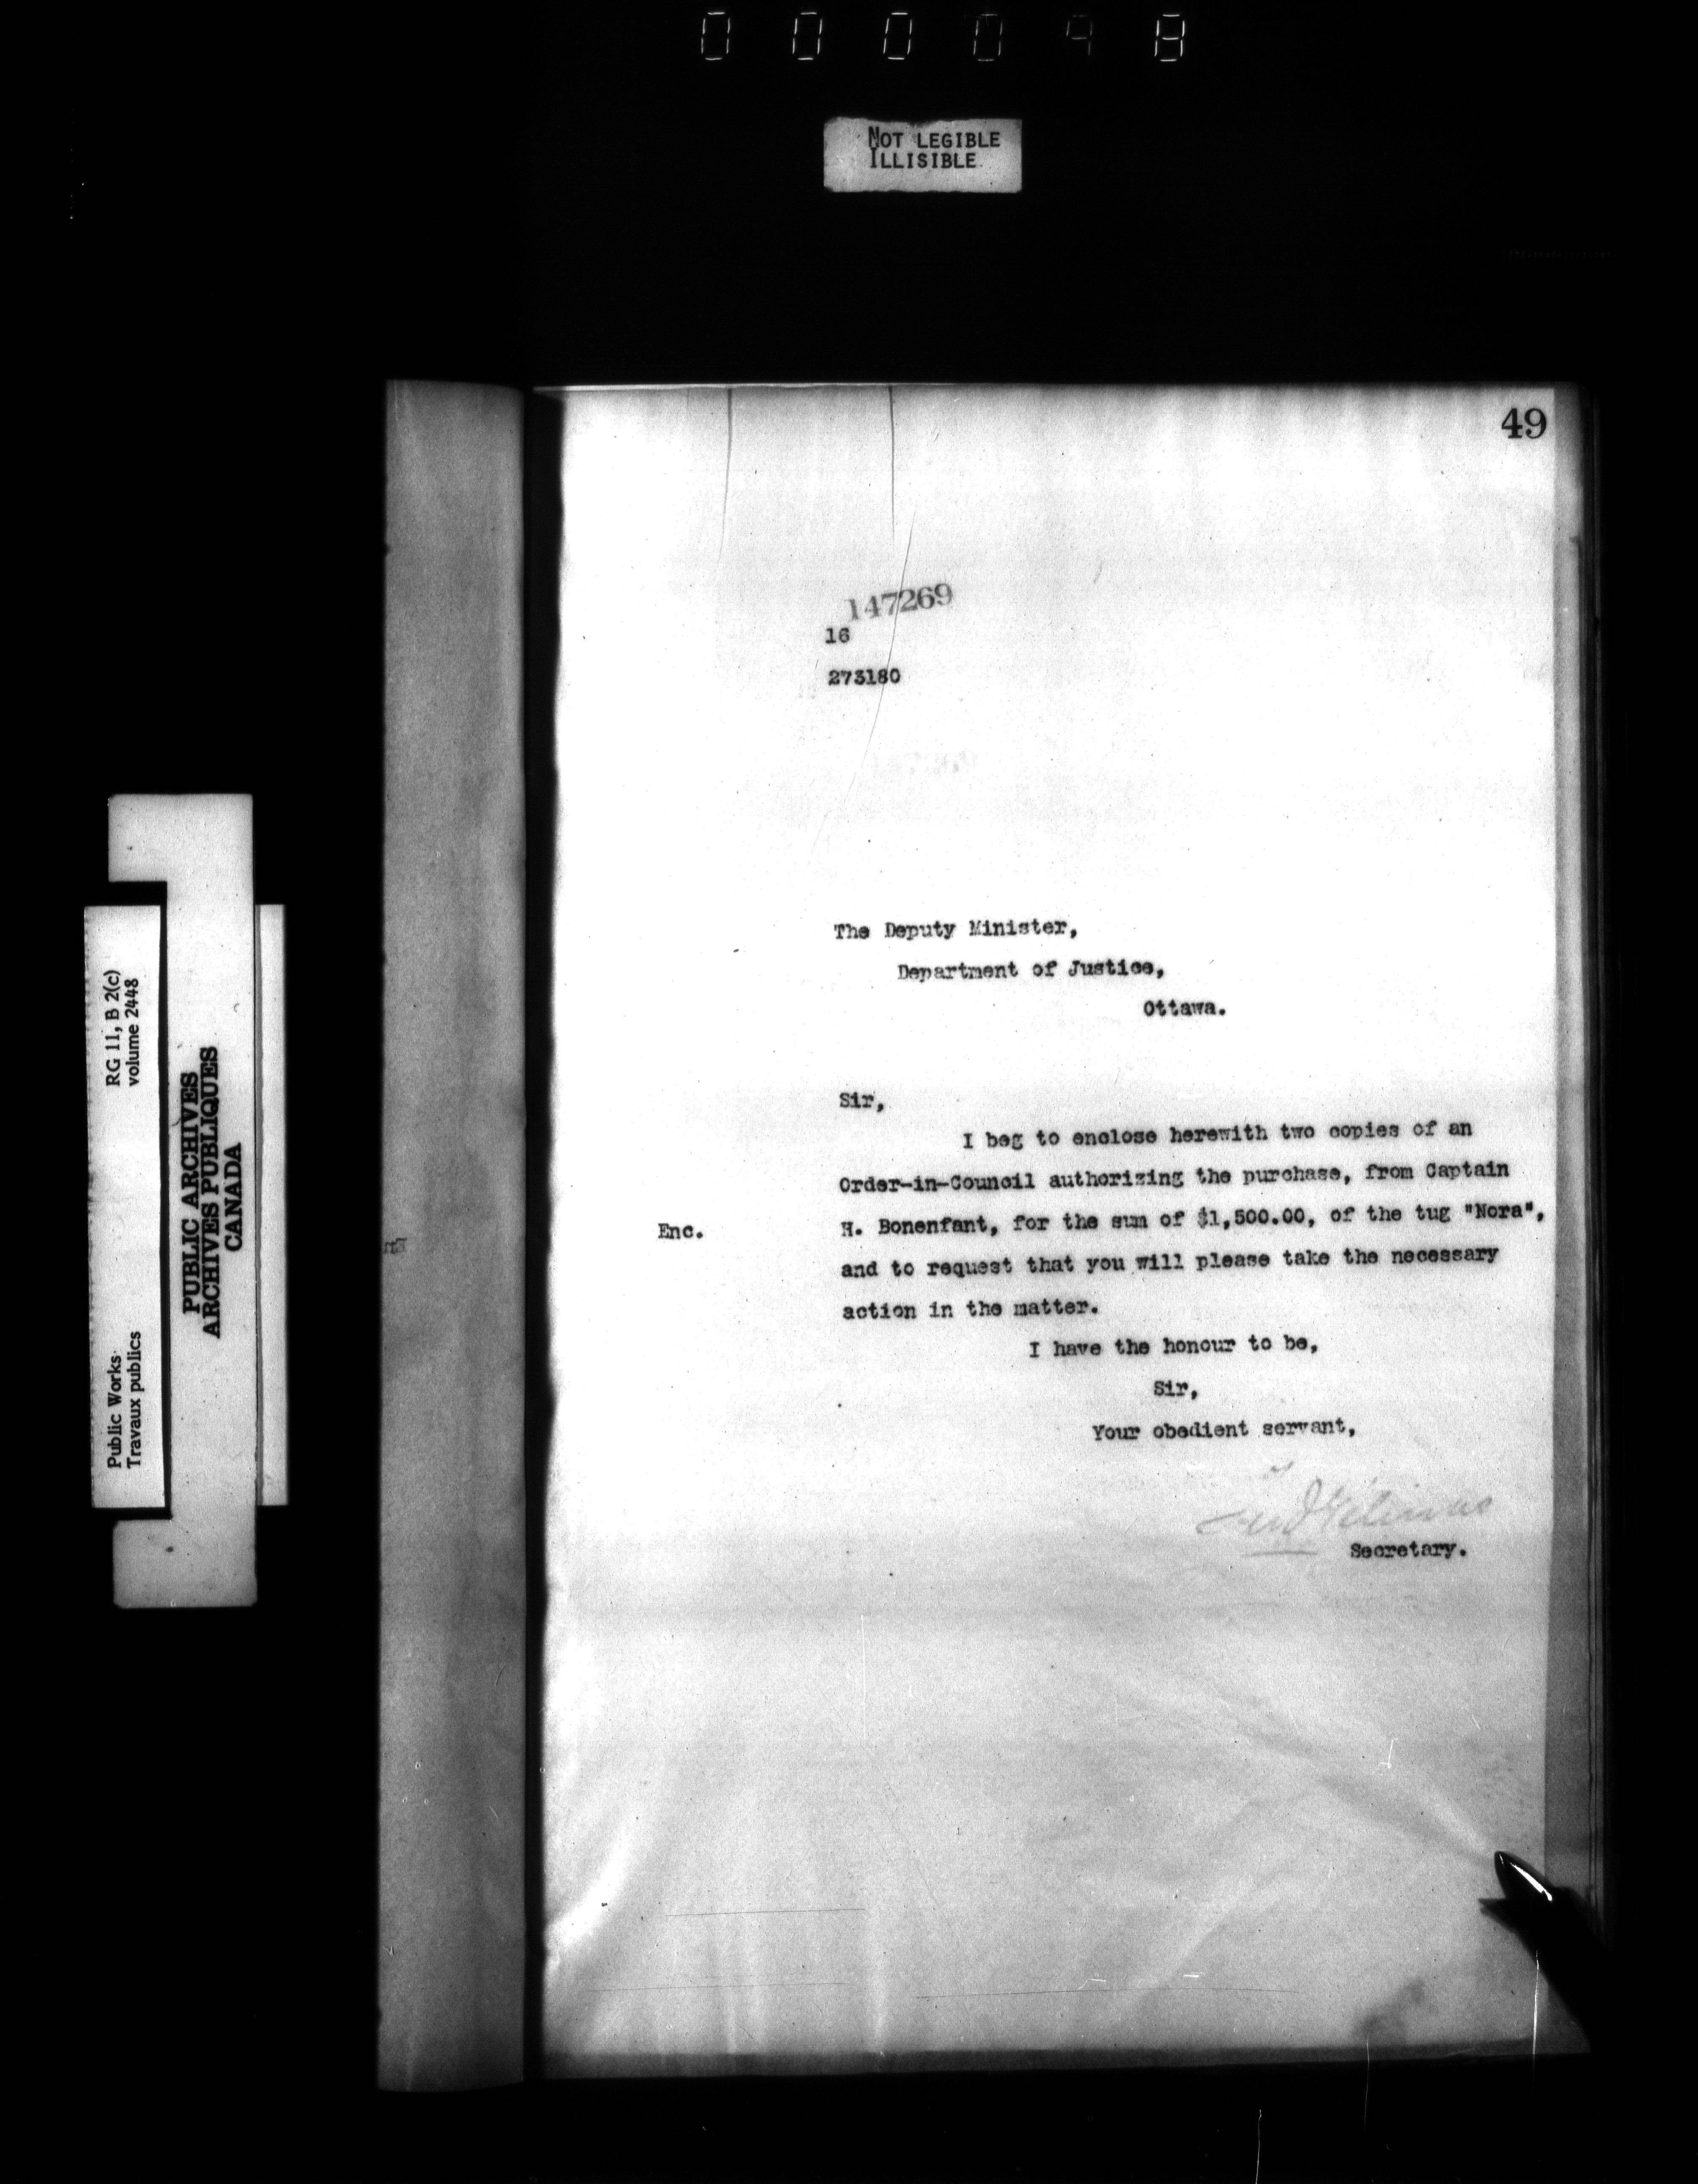 000098
NOT LEGIBLE
ILLISIBLE
49
147269
16
273180
The Deputy Minister,
Department of Justice,
Ottawa.
Sir,
I beg to enclose herewith two copies of an
Order-in-Council authorizing the purchase, from Captain
Enc. H. Bonenfant, for the sum of $1,500.00, of the tug "Nora",
and to request that you will please take the necessary
action in the matter.
I have the honour to be,
Sir,
Your obedient servant,
Secretary.
RG 11, B 2(c)
volume 2448
Public Works
Travaux publics
PUBLIC ARCHIVES
ARCHIVES PUBLIQUES
CANADA